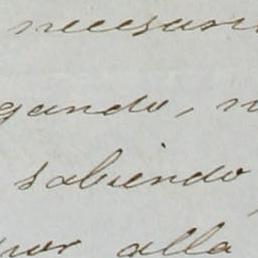 necesari
gando, n
sabiendo
por alla